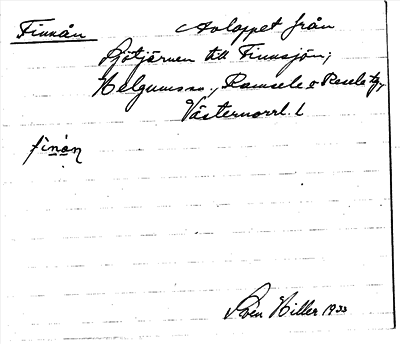 Finnån Avloppet från
Sjötjärnen till Finnsjön;
Helgums sn., Ramsele o Resele tg,
Västernorrl. L
finån
Sven Hiller 1933